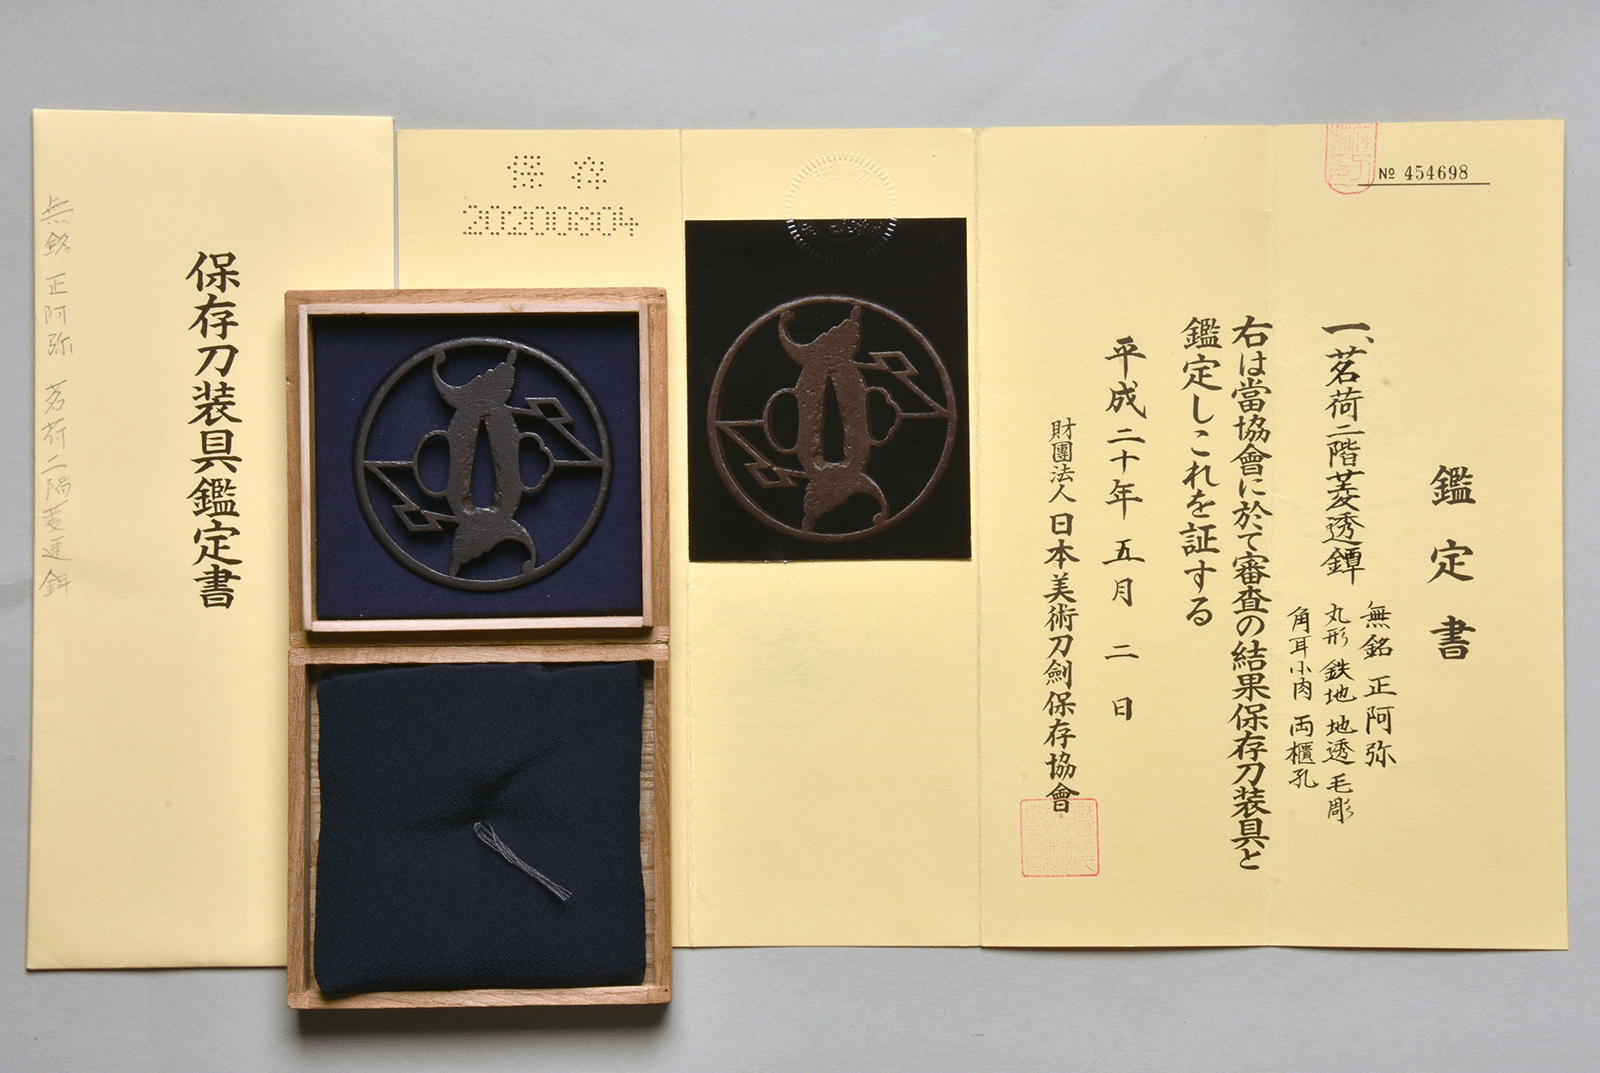 № 454698
鑑定書
一、茗荷二階菱透鐔
無銘 正阿弥
丸形 鉄地 地透 毛彫
角耳小肉 両櫃孔
右は當協會に於て審査の結果保存刀装具と
鑑定しこれを証する
平成二十年 五月 二日
財團法人 日本美術刀劍保存協會
保存
20200804
保存刀装具鑑定書
無銘 正阿弥 茗荷二階菱透鐔